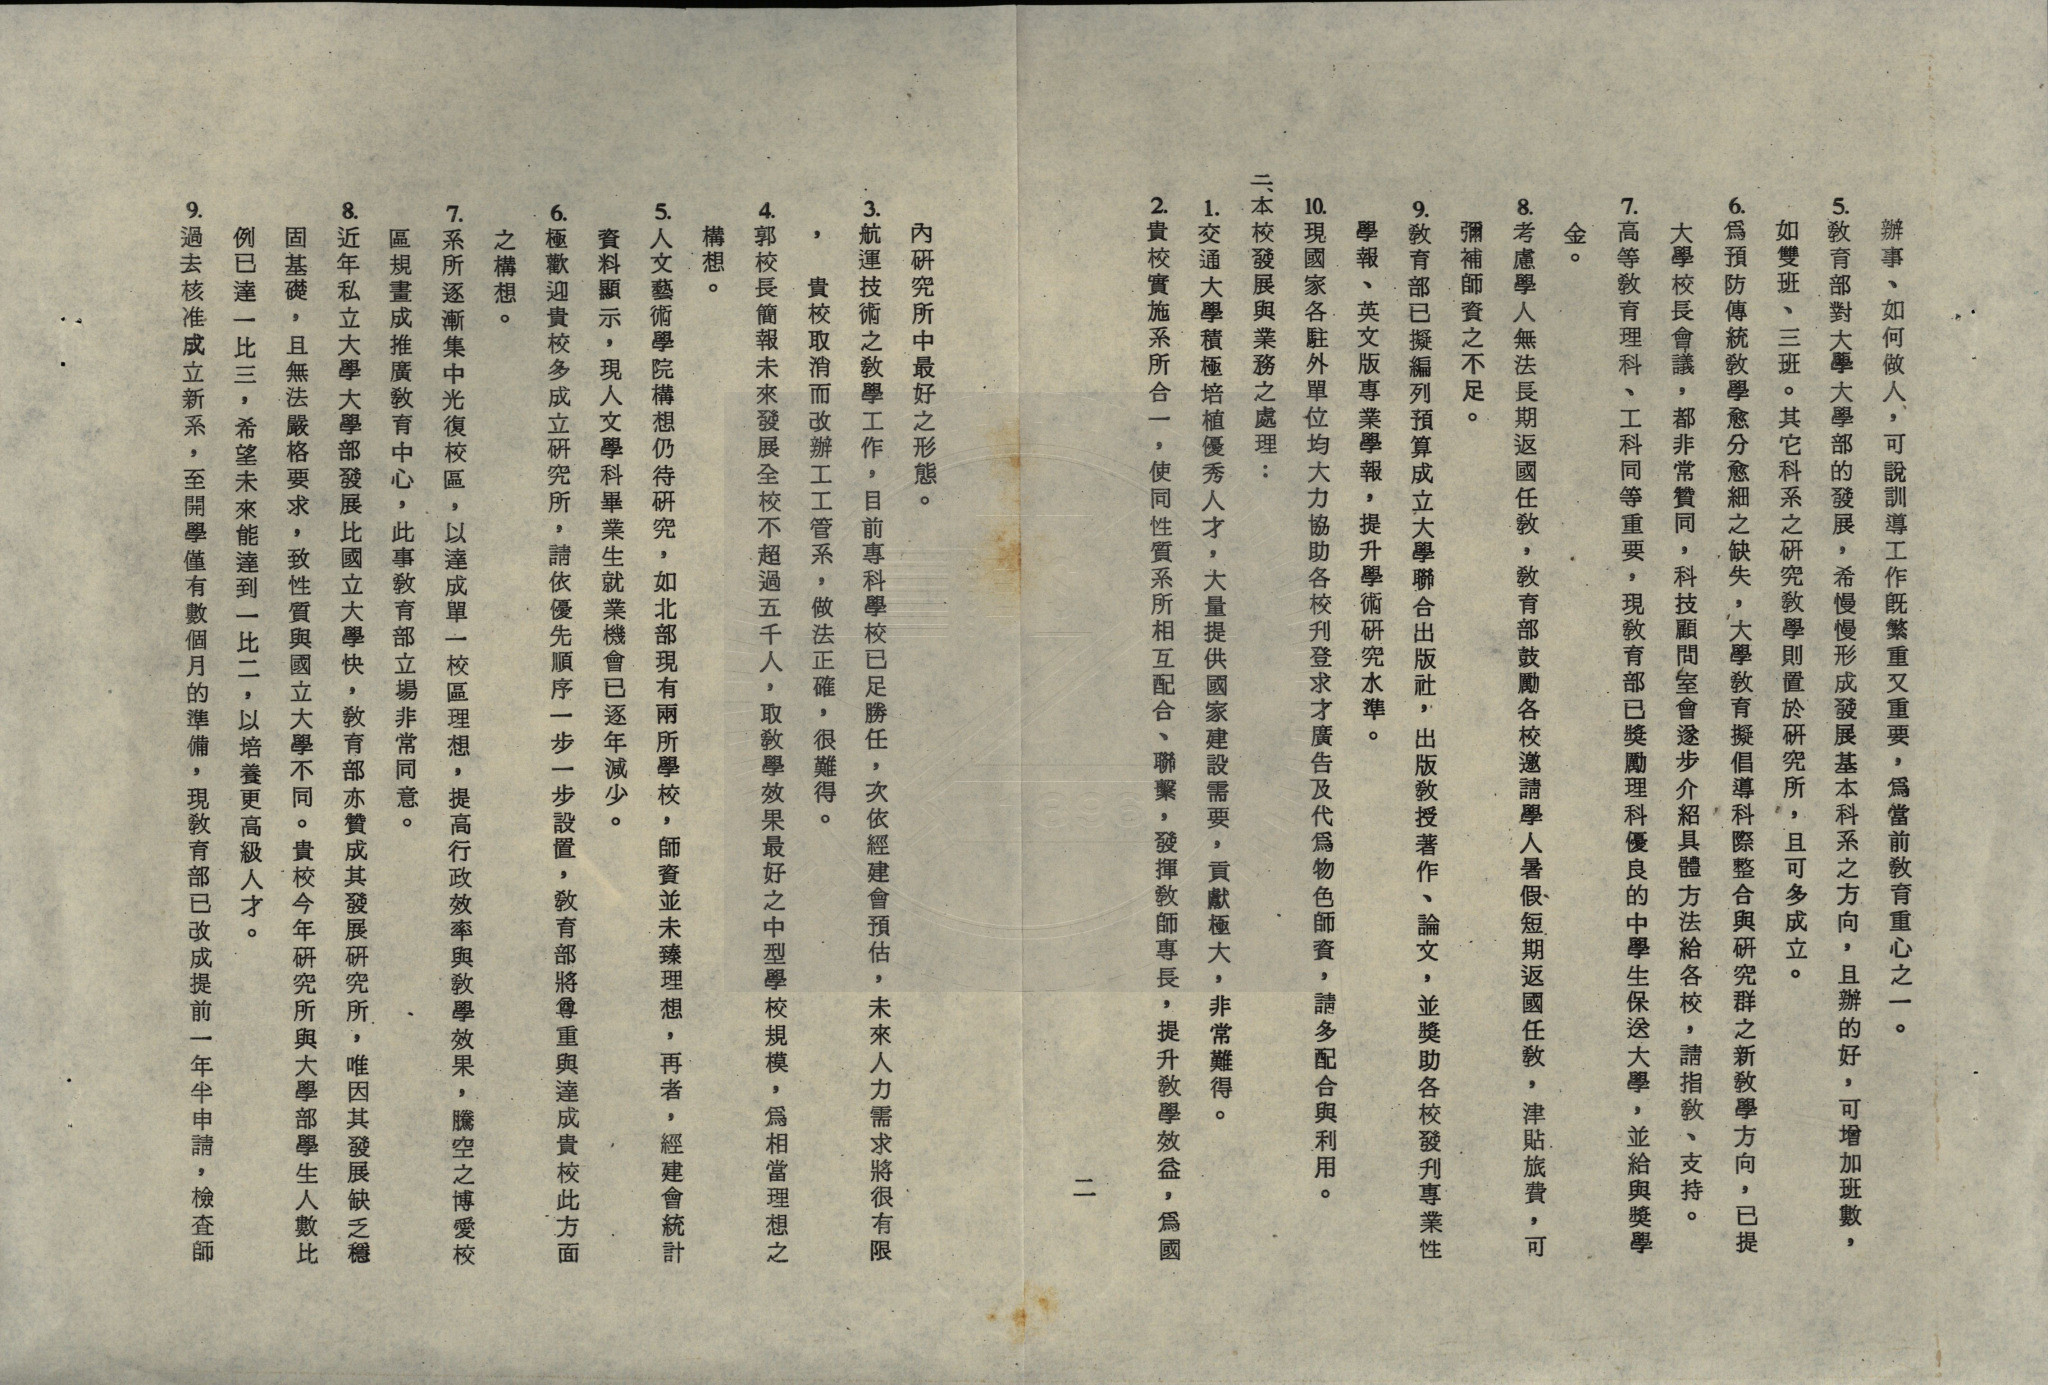 辦事、如何做人，可說訓導工作旣繁重又重要，爲當前敎育重心之一。
5.敎育部對大學大學部的發展，希慢慢形成發展基本科系之方向，且辦的好，可增加班數，
如雙班、三班。其它科系之硏究敎學則置於硏究所，且可多成立。
6.爲預防傳統敎學愈分愈細之缺失，大學敎育擬倡導科際整合與硏究群之新敎學方向，已提
大學校長會議，都非常贊同，科技顧問室會逐步介紹具體方法給各校，請指敎、支持。
7.高等敎育理科、工科同等重要，現敎育部已獎勵理科優良的中學生保送大學，並給與獎學
金。
8.考慮學人無法長期返國任敎，敎育部鼓勵各校邀請學人暑假短期返國任敎，津貼旅費，可
彌補師資之不足。
9.敎育部已擬編列預算成立大學聯合出版社，出版敎授著作、論文，並獎助各校發刋專業性
學報、英文版專業學報，提升學術硏究水準。
10.現國家各駐外單位均大力協助各校刋登求才廣告及代爲物色師資，請多配合與利用。
二、本校發展與業務之處理：
1.交通大學積極培植優秀人才，大量提供國家建設需要，貢獻極大，非常難得。
2.貴校實施系所合一，使同性質系所相互配合、聯繫，發揮敎師專長，提升敎學效益，爲國
二
內硏究所中最好之形態。
3.航運技術之敎學工作，目前專科學校已足勝任，次依經建會預估，未來人力需求將很有限
，貴校取消而改辦工工管系，做法正確，很難得。
4.郭校長簡報未來發展全校不超過五千人，取敎學效果最好之中型學校規模，爲相當理想之
構想。
5.人文藝術學院構想仍待硏究，如北部現有兩所學校，師資並未臻理想，再者，經建會統計
資料顯示，現人文學科畢業生就業機會已逐年減少。
6.極歡迎貴校多成立硏究所，請依優先順序一步一步設置，敎育部將尊重與達成貴校此方面
之構想。
7.系所逐漸集中光復校區，以達成單一校區理想，提高行政效率與敎學效果，騰空之博愛校
區規畫成推廣敎育中心，此事敎育部立場非常同意。
8.近年私立大學大學部發展比國立大學快，敎育部亦贊成其發展硏究所，唯因其發展缺乏穩
固基礎，且無法嚴格要求，致性質與國立大學不同。貴校今年硏究所與大學部學生人數比
例已達一比三，希望未來能達到一比二，以培養更高級人才。
9.過去核准成立新系，至開學僅有數個月的準備，現敎育部已改成提前一年半申請，檢查師